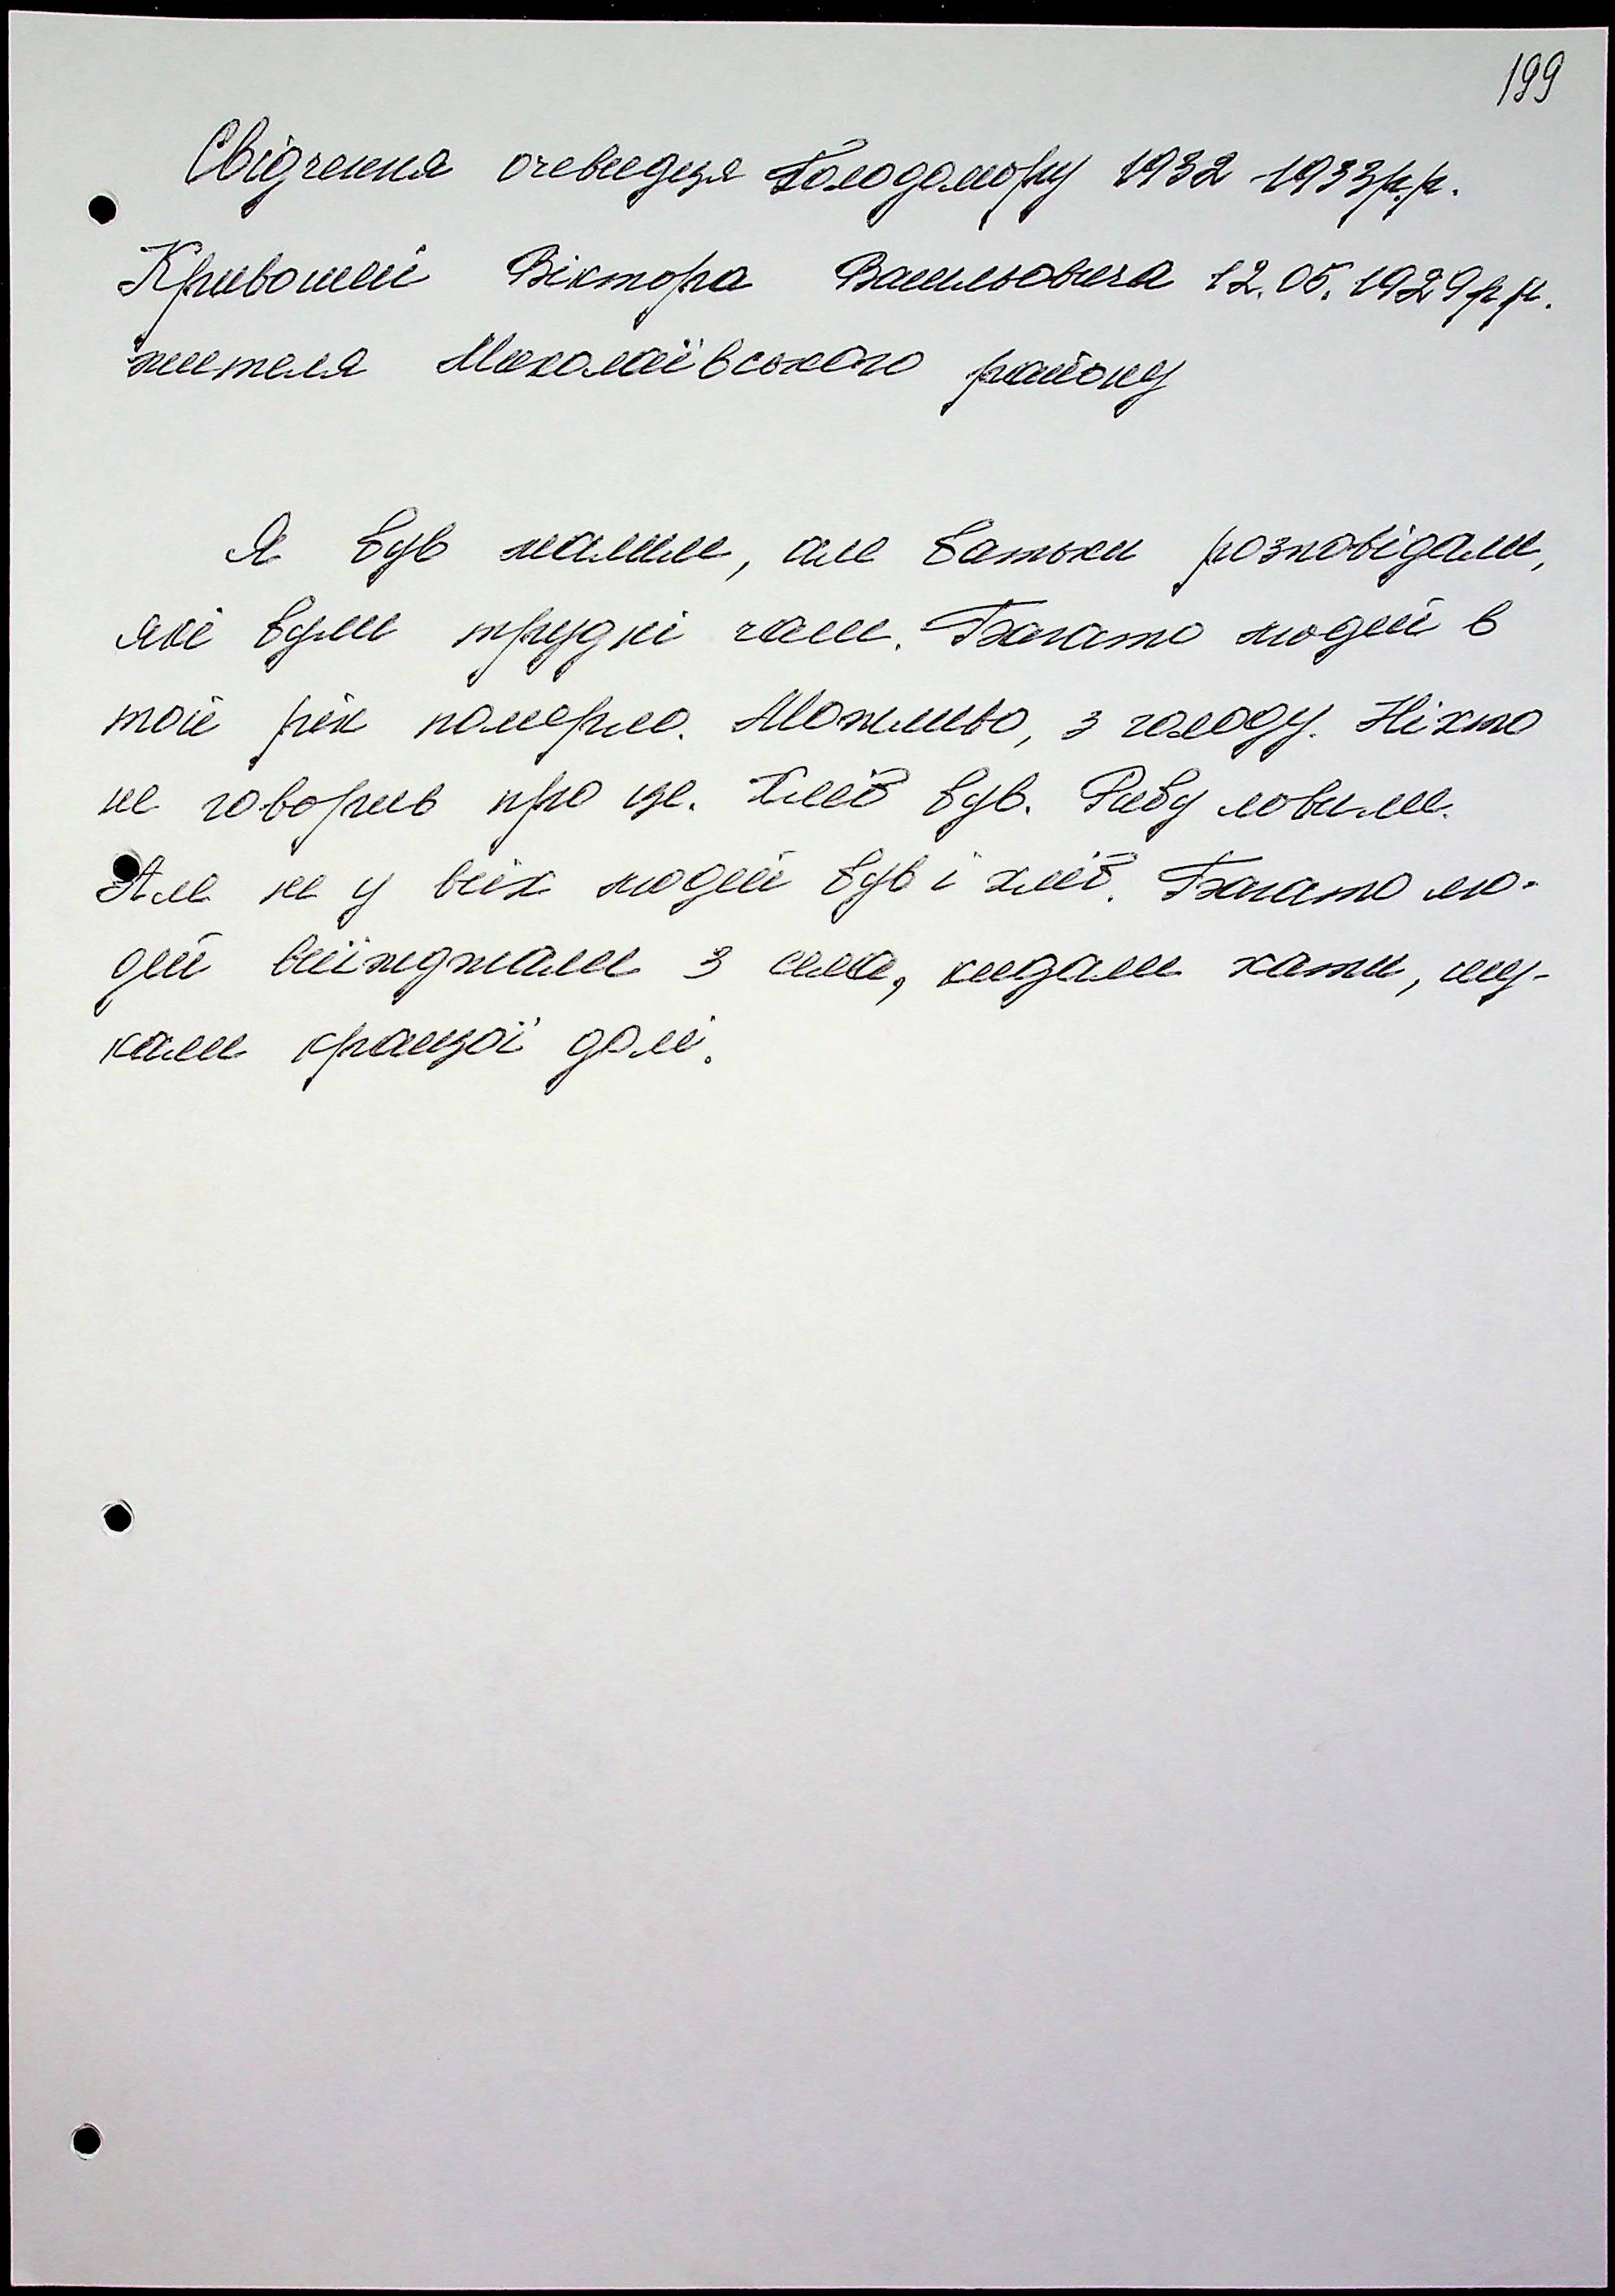 199
Свідчення очевидця Голодомору 1932-1933р.р.
Кривошей Віктора Васильовича 12.05.1929р.н.
жителя Миколаївського району
Я був малим, але батьки розповідали,
які були трудні часи. Багато людей в
той рік померло. Можливо, з голоду. Ніхто
не говорив про це. Хліб був. Рибу ловили.
Але не у всіх людей був і хліб. Багато лю-
дей виїжджали з села, кидали хати, шу-
кали кращої долі.